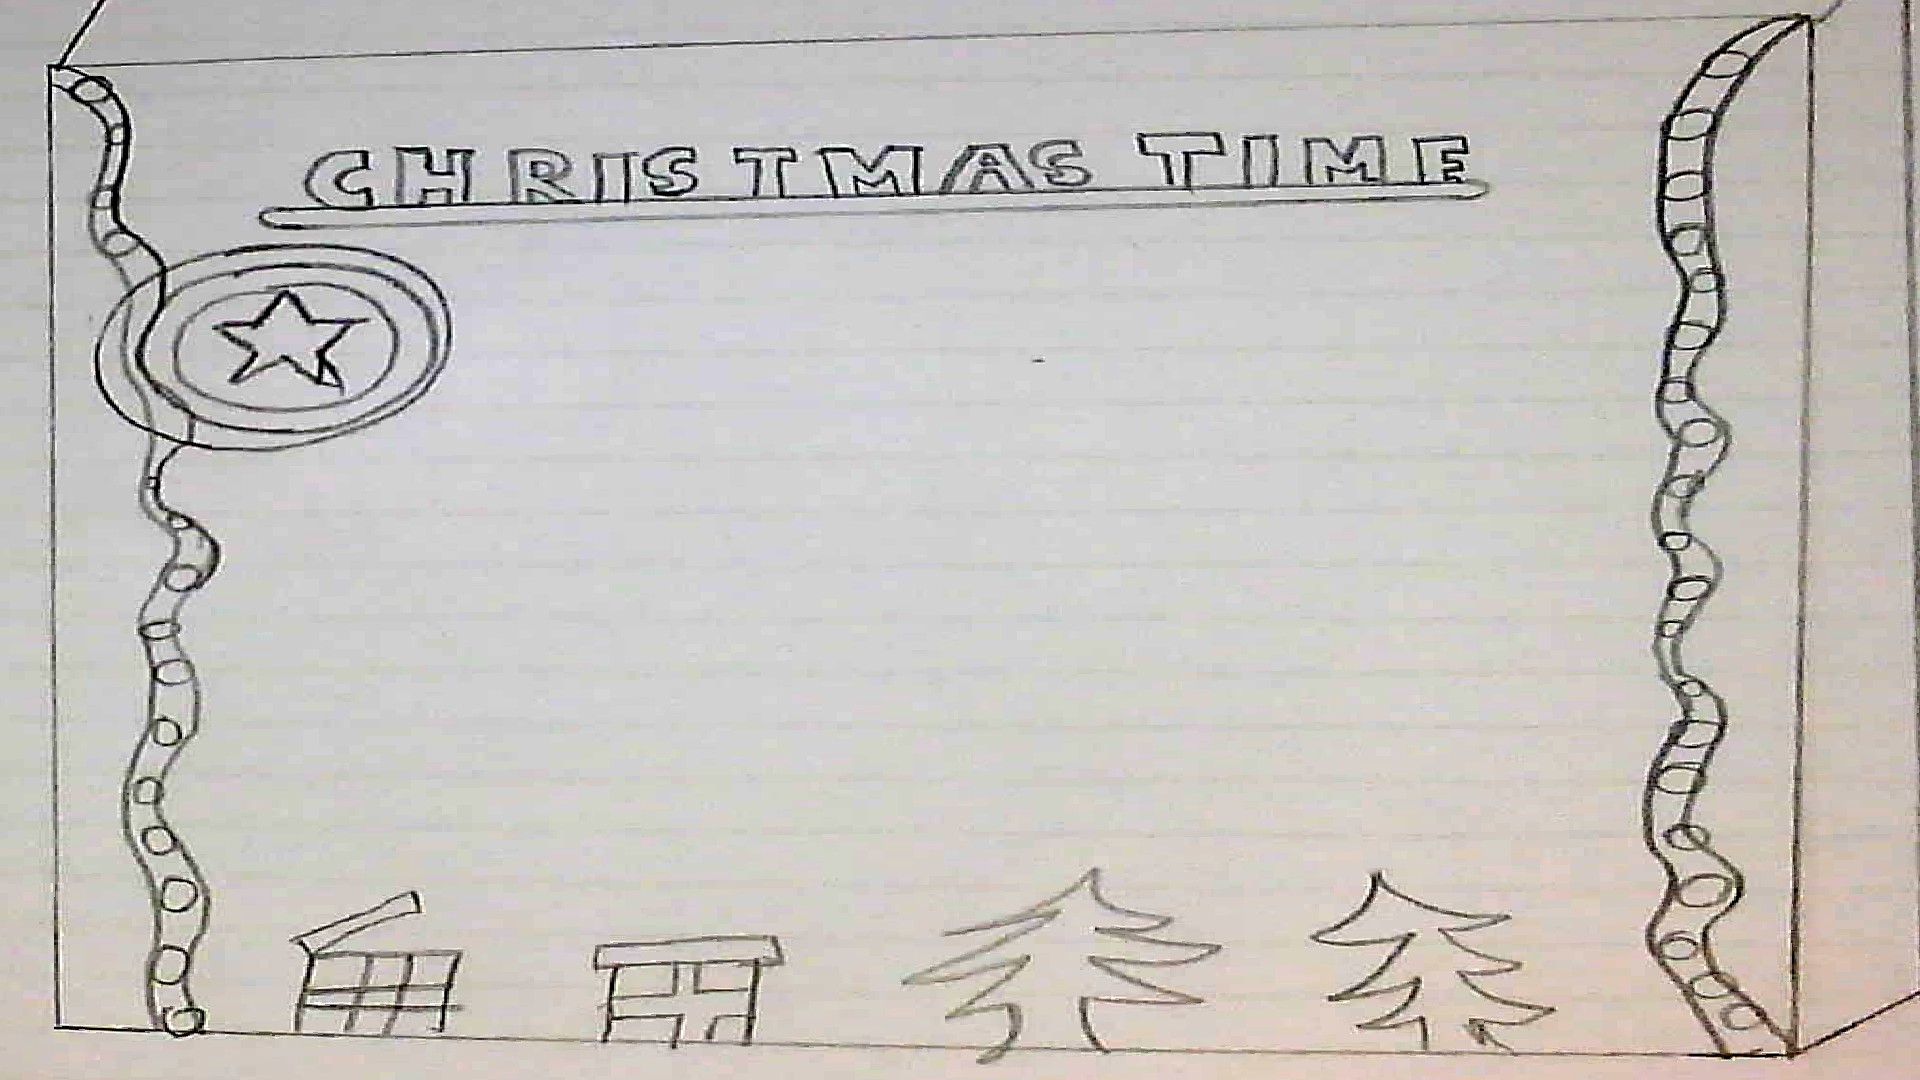 CHRISTMAS TIME